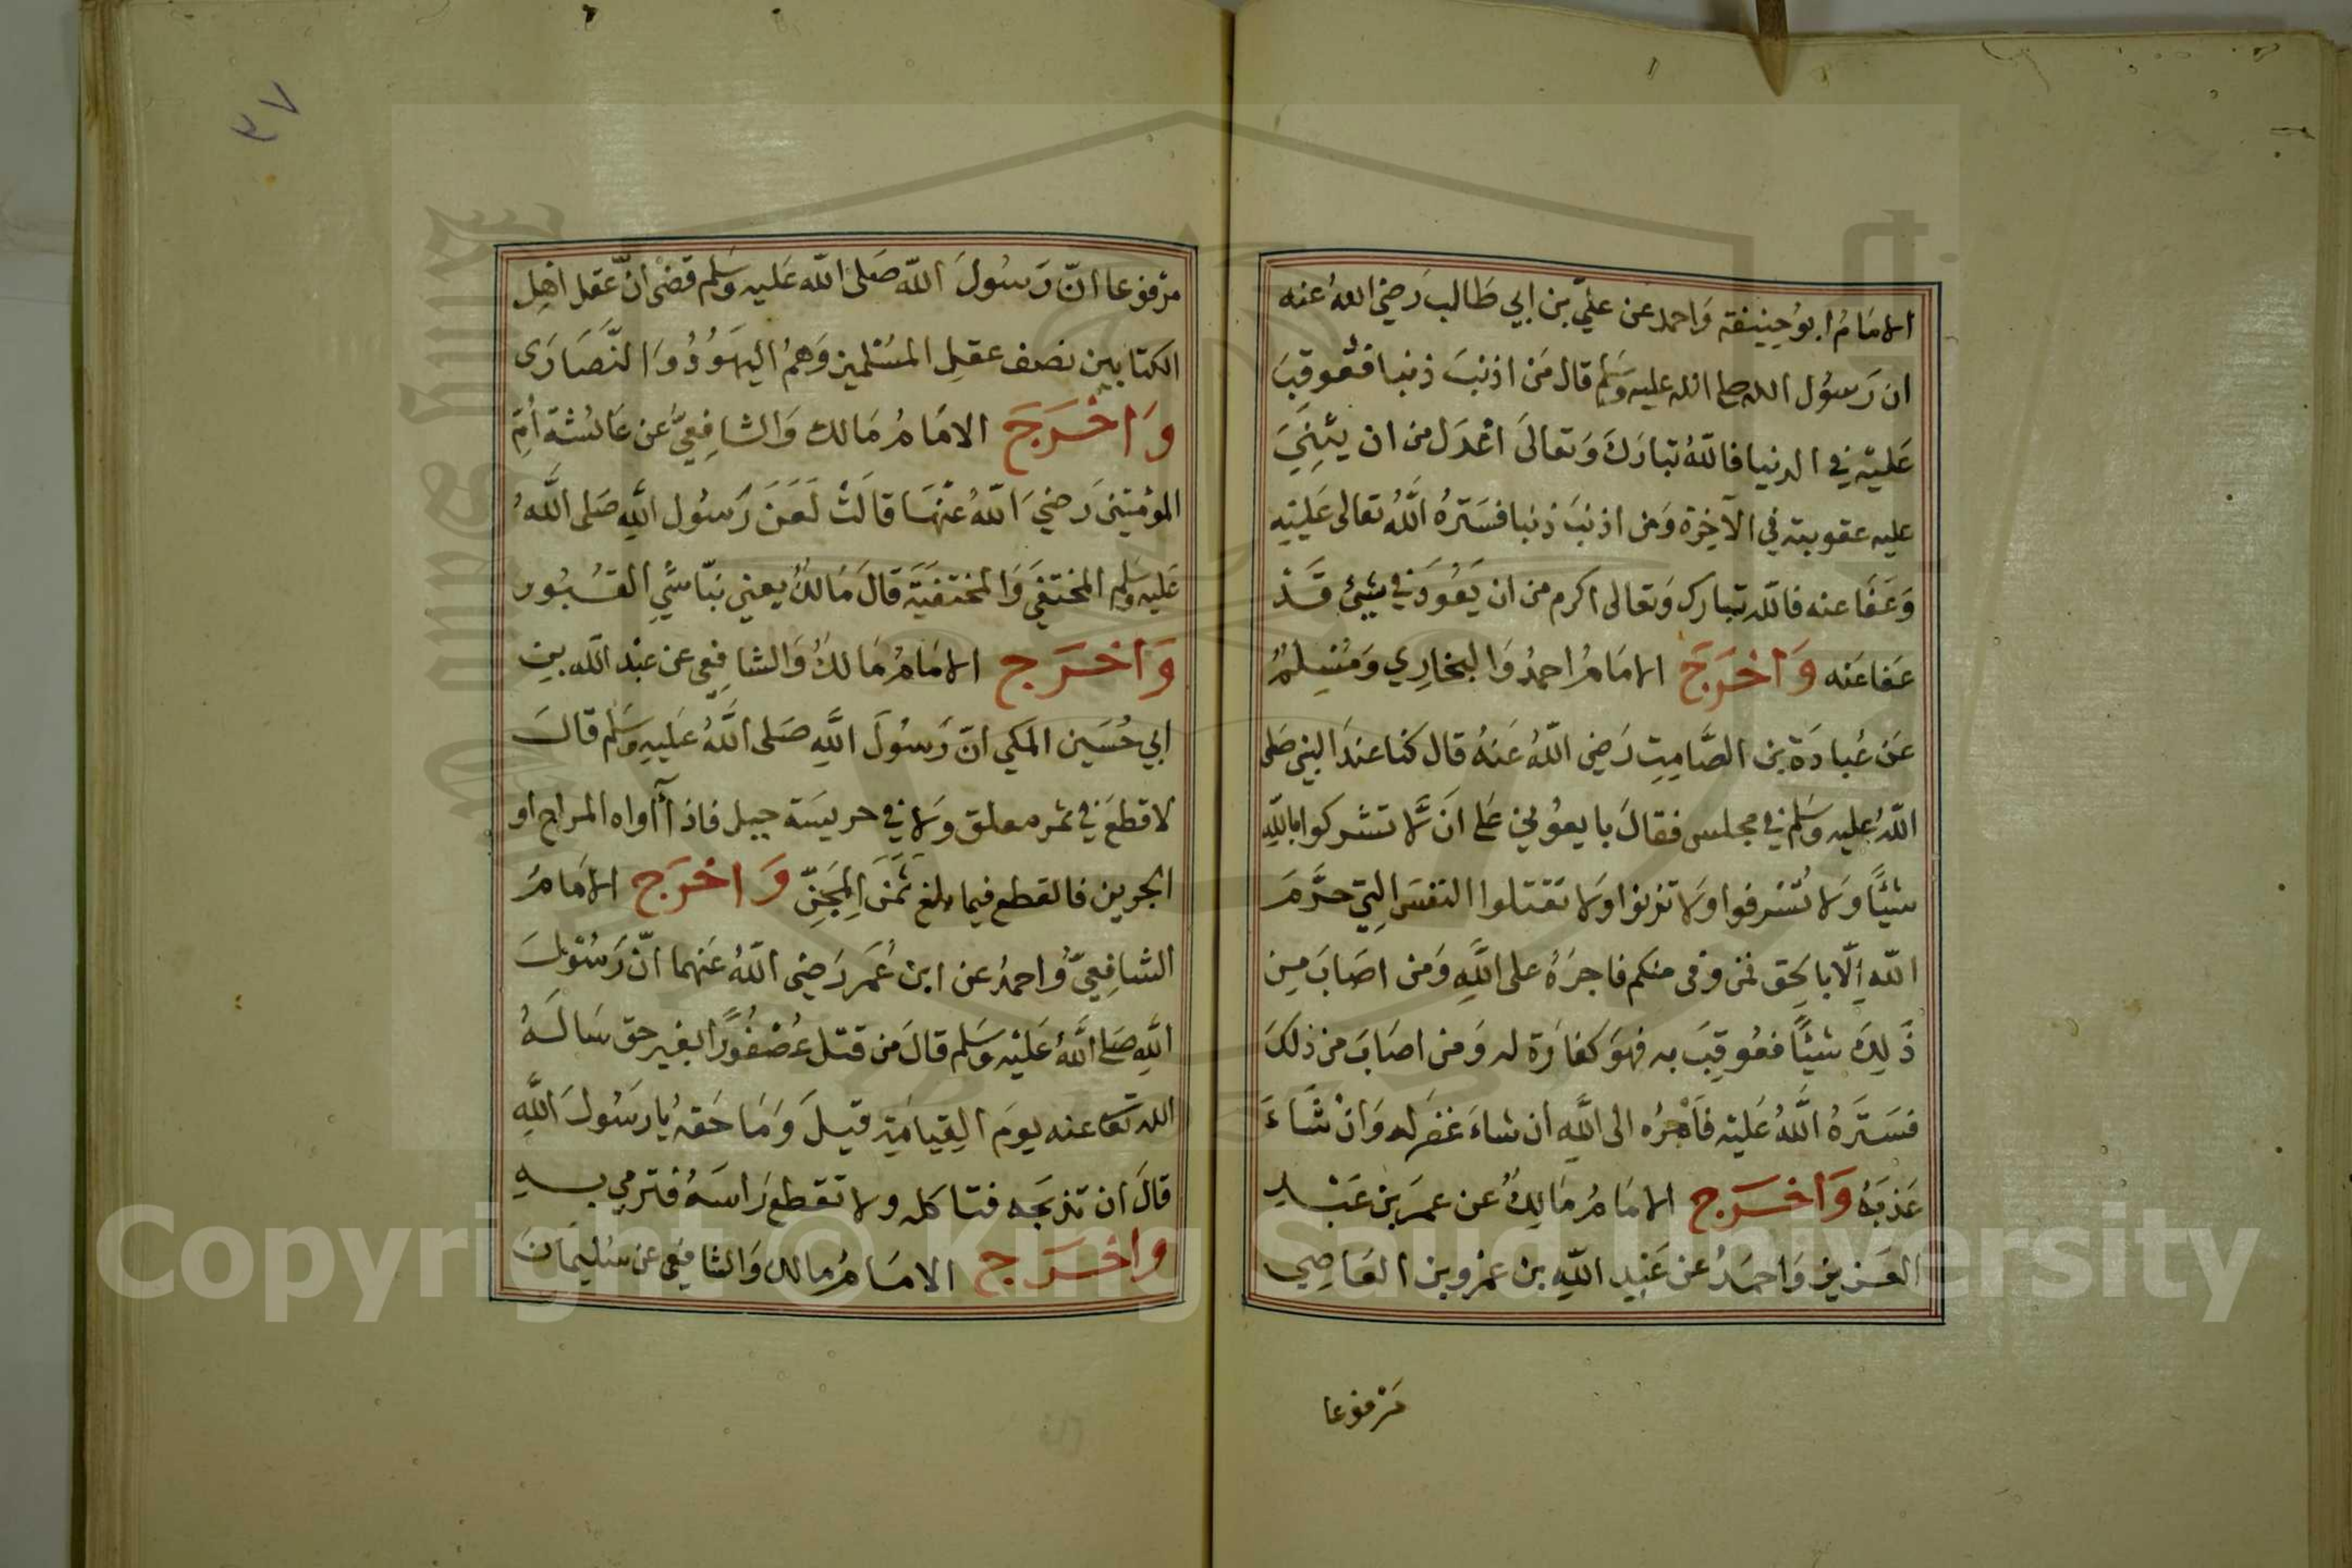 الامَامُ ابوُحِنيفة وَاحمد عن عليّ بن ابي طَالب رَضيَ اللهُ عنه
ان رَسوُل الله صلى الله عليه وسَلم قال مَن اذنبَ ذنبا فعُوقِبَ
عَليْه في الدنيا فاللهُ تبارَكَ وَتعالىَ اعْدَل من ان يثنِيَ
عليه عقوبته في الآخِرة وَمن اذنبَ ذنبا فسَترهُ اللَّهُ تعالى عَليْهِ
وَعَفَا عنه فالله تبارك وَتعالى اكرم من ان يَعُودَ في شيئ قَدْ
عَفا عَنه وَاخرَجَ الامَامُ احمدُ وَالبخارِي وَمُسْلِمٌ
عَن عُبادَة بن الصَّامِتِ رَضي اللهُ عَنهُ قال كنا عندَ النبي صَلى
اللهُ عليه وسَلم في مجلس فقالَ بايعوُني عَلى انَ لَّا تشركوا باللهِ
شيئًا وَلا تُسْرفوا وَلا تزنوا وَلا تَقتلوا النفسَ التِي حرَّمَ
اللهِ إلّا بالحِق فمَن وَفى منكم فاجرَهُ على اللَّهِ وَمَن اصَابَ مِن
ذَلِكَ شيئًا فعُوقِبَ به فهوَ كفارَة له وَمن اصَابَ من ذلكَ
فسَترَهُ اللَّهُ عَليْه فَأجرُه الى اللَّهِ ان شاءَ غفرَ له وَانْ شَاءَ
عَذبَهُ وَاخرَج الامَامُ مَالِكٌ عن عمرَ بن عَبْدِ
العَزيز وَاحمَدُ عن عَبْدِ اللهِ بن عمْرو بن العَاصِي
مَرْفوُعا
٣٧
مرْفوعا انّ رَسُولَ اللّه صَلى اللّه عَليه وَسَلم قضىَ انَّ عَقل اهْلِ
الكتابين نصف عقلِ المسْلمين وَهمُ اليهَوُدُ وَالنَّصَارَى
وَاخْرَجَ الامَامُ مَالك وَالشافِعيُّ عَن عَائشة أمِّ
المؤمنِينَ رَضيَ اللّهُ عنْهَا قالَتْ لَعَنَ رَسوُل اللَّهِ صَلى اللَّهُ
عَليه وَسَلم المختفيَ وَالمختفيَة قالَ مَالكٌ يعني نبّاشيِ القبُور
وَاخرَج الامَامُ مَالكٌ وَالشافِعي عن عبْد الله بن
ابي حُسَين المكي انّ رَسوُلَ اللَّهِ صَلى اللَّهُ عَليهِ وسَلم قالَ
لا قطعَ في ثمر معلق وَلا في حريسَة جبل فاذَا آواه المراح او
الجرين فالقطع فيما بلغ ثمَنَ المِجَنِّ وَاخرَج الامَامُ
الشافِعيّ وُاحمدُ عن ابن عُمَر رَضي اللّهُ عَنهما انّ رَسُولَ
اللَّهِ صَلى اللَّهُ عَليْه وسَلم قالَ مَن قتل عُصْفُورًا بغير حق سَالهُ
الله تعا عنه يومَ القِيامَة قيلَ وَمَا حَقهُ يارسَوُلَ اللَّهِ
قالَ ان تذبحَه فتاكله ولا تقطع رَاسَهُ فترمي بهِ
واخرَج الامَامُ مالك وَالشافِعي عن سُليمَانَ